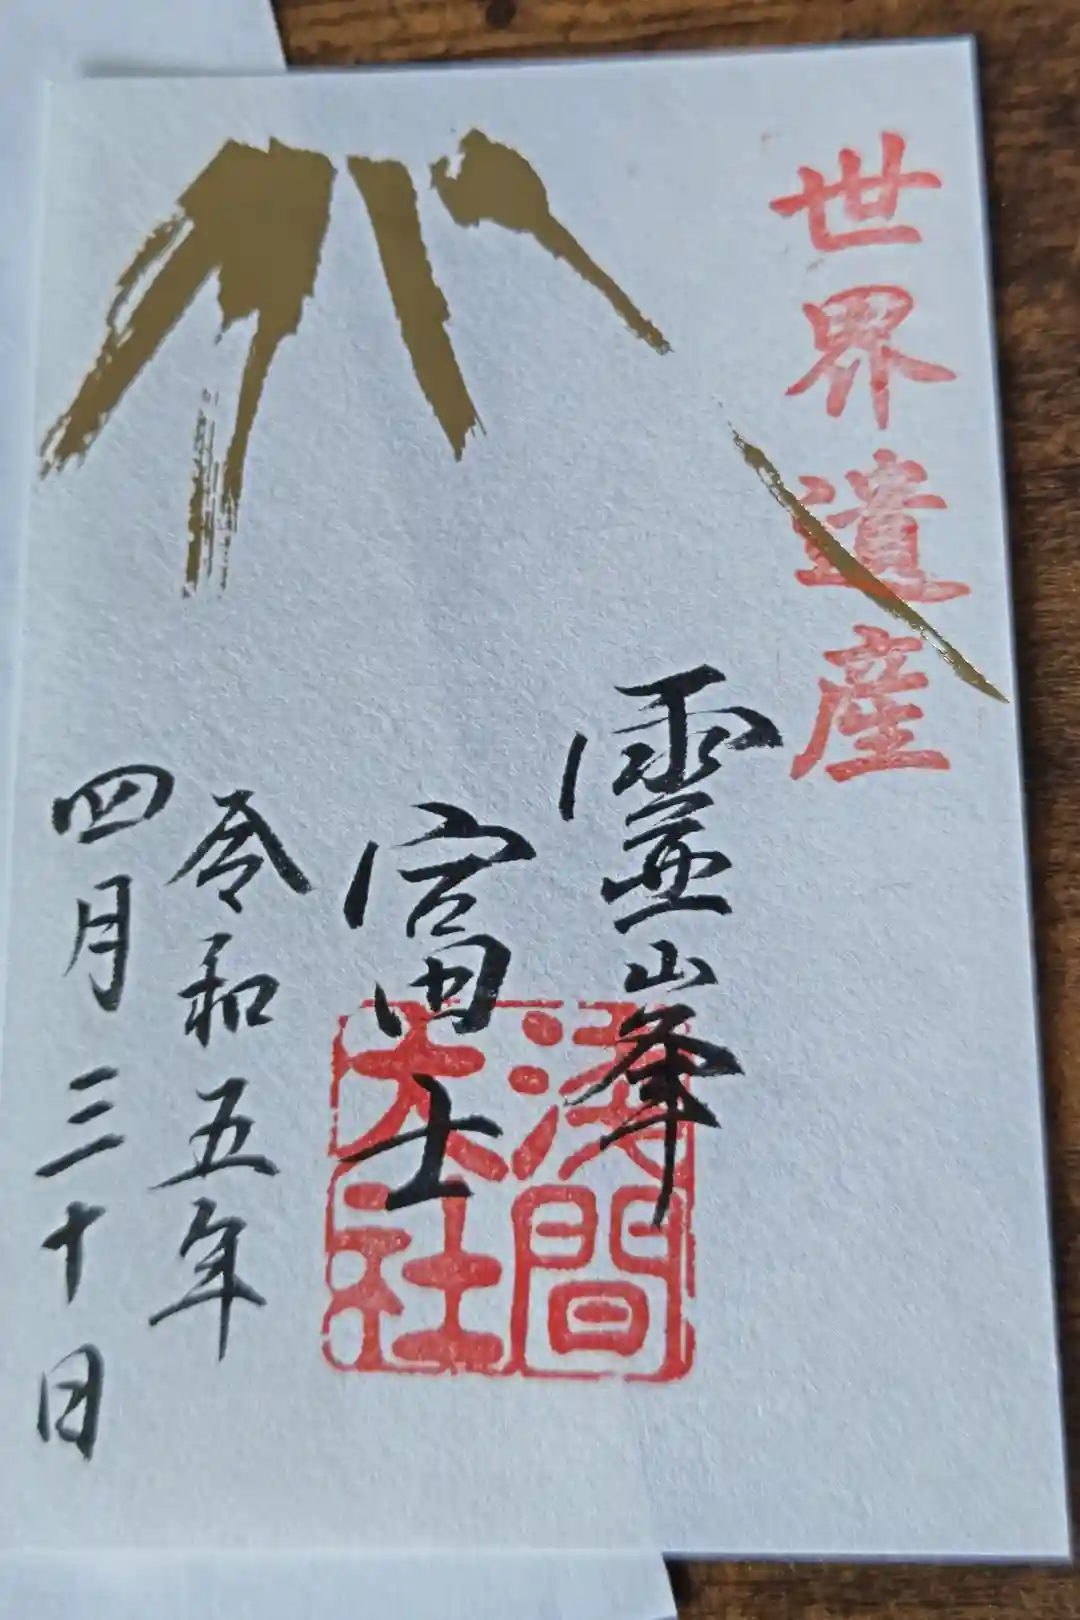 世界遺産
霊峯
富士
浅間
大社
令和五年
四月三十日